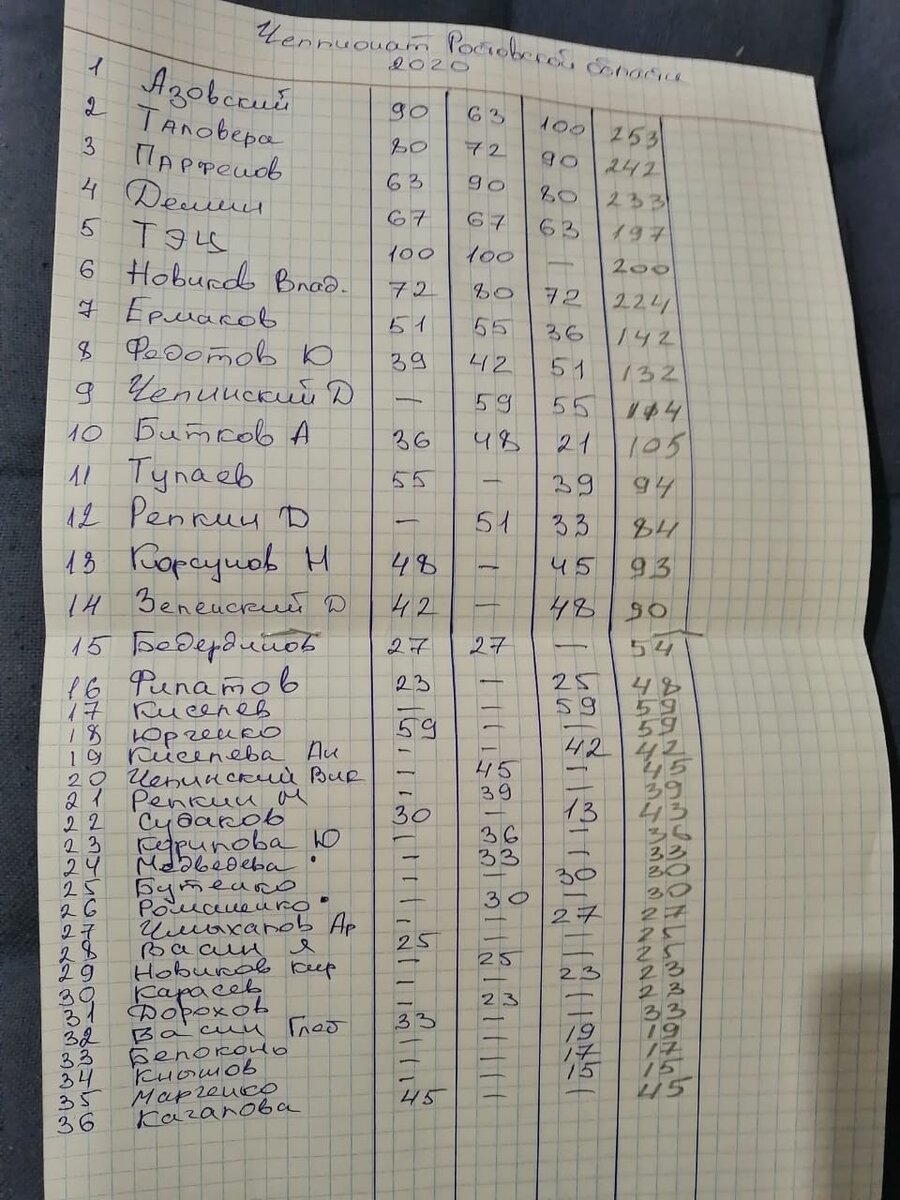 Чемпионат Ростовской области
2020
1 Азовский 90 63 100 253
2 Таловера 80 72 90 242
3 Парфенов 63 90 80 233
4 Демин 67 67 63 197
5 ТЭЦ 100 100 — 200
6 Новиков Влад. 72 80 72 224
7 Ермаков 51 55 36 142
8 Федотов Ю 39 42 51 132
9 Челинский Д — 59 55 114
10 Битков А 36 48 21 105
11 Тулаев 55 — 39 94
12 Репкин D — 51 33 84
13 Корсунов Н 48 — 45 93
14 Зеленский D 42 — 48 90
15 Бедердинов 27 27 — 54
16 Филатов 23 — 25 48
17 Киселев — — 59 59
18 Юрченко 59 — — 59
19 Киселева Ан — — 42 42
20 Челинский Вик — 45 — 45
21 Репкин Н — 39 — 39
22 Судаков 30 — 13 43
23 Курилова Ю — 36 — 36
24 Медведева — 33 — 33
25 Бутенко — — 30 30
26 Романенко — 30 — 30
27 Чмыхалов Ар — — 27 27
28 Васин Я 25 — — 25
29 Новиков Кир — 25 — 25
30 Карасев — — 23 23
31 Дорохов — 23 — 23
32 Васин Глеб 33 — — 33
33 Белоконь — — 19 19
34 Кнышов — — 17 17
35 Марченко — — 15 15
36 Кагалова 45 — — 45